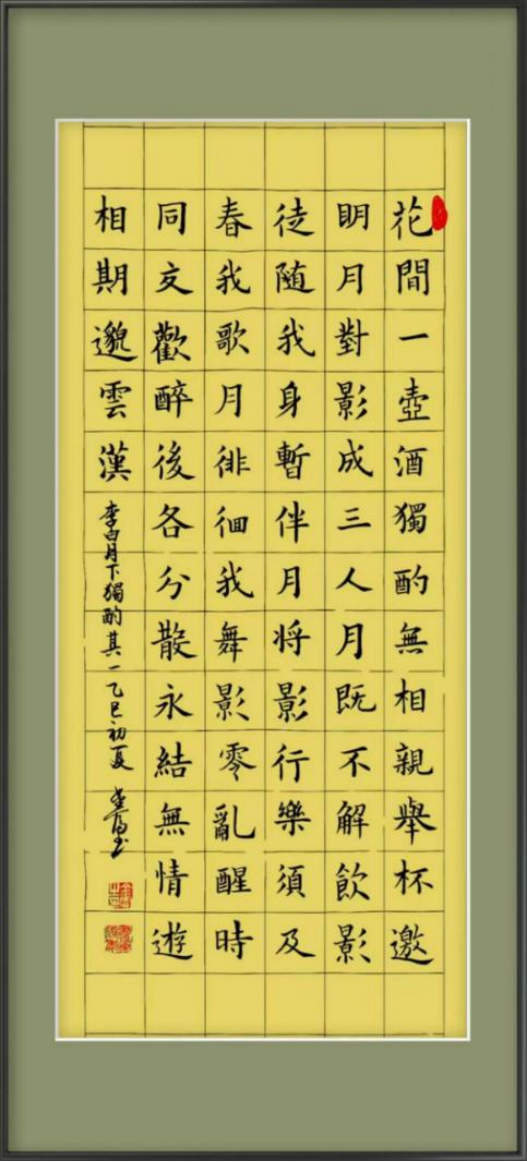 花間一壺酒獨酌無相親舉杯邀
明月對影成三人月既不解飲影
徒隨我身暫伴月將影行樂須及
春我歌月徘徊我舞影零亂醒時
同交歡醉後各分散永結無情遊
相期邈雲漢
李白月下獨酌其一乙巳初夏